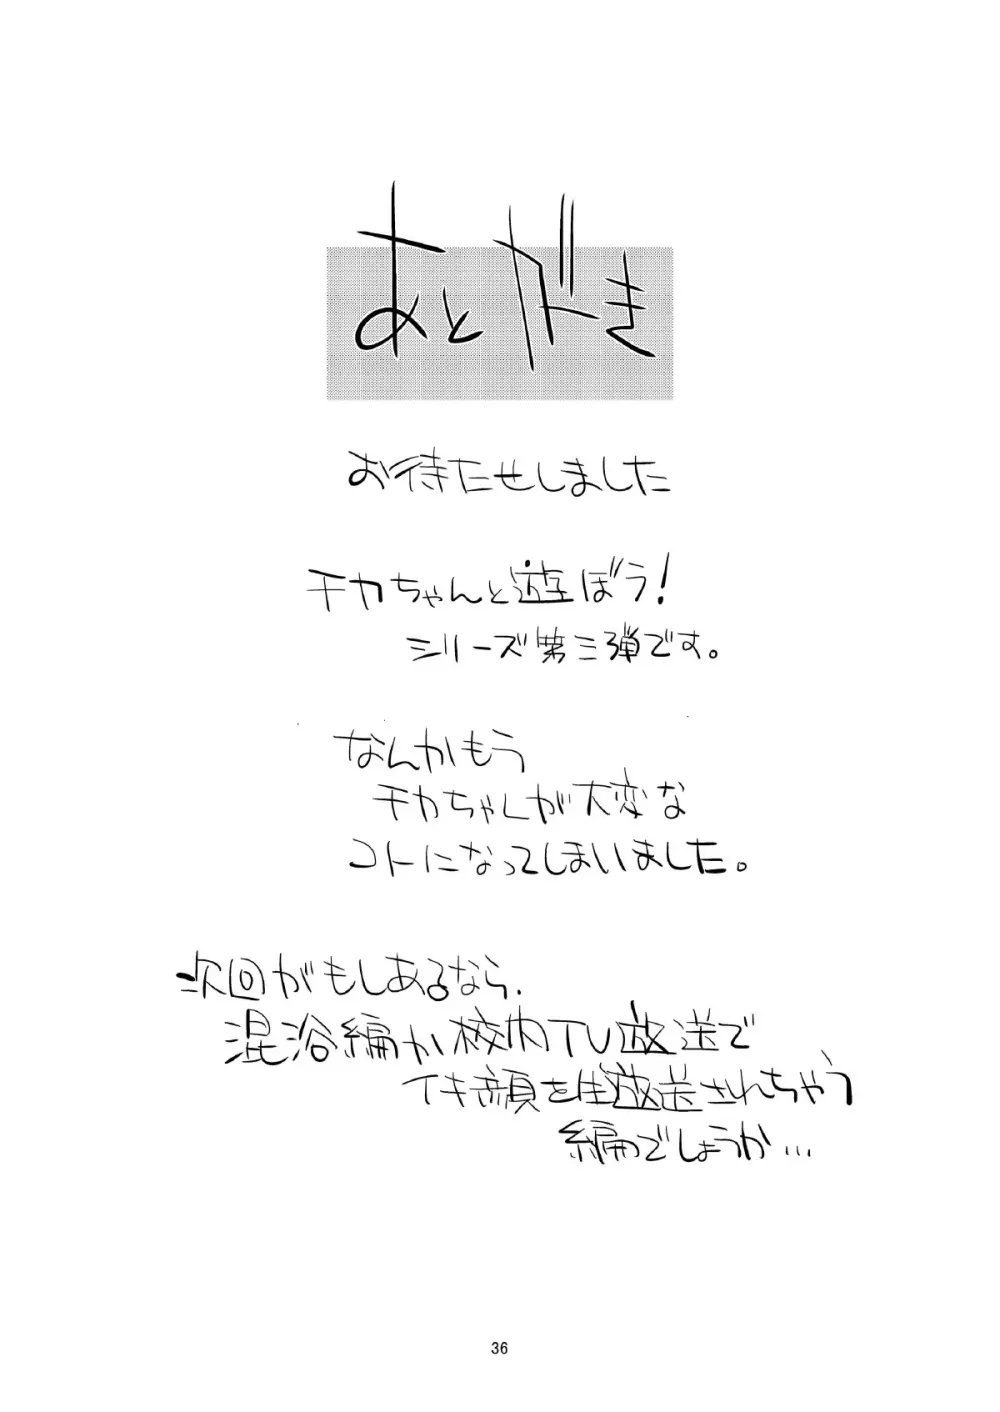 あとがき
お待たせしました
チカちゃんと遊ぼう!
シリーズ第三弾です。
なんかもう
チカちゃんが大変な
コトになってしまいました。
次回がもしあるなら、
混浴編か校内TV放送で
イキ顔を生放送されちゃう
編でしょうか…
36